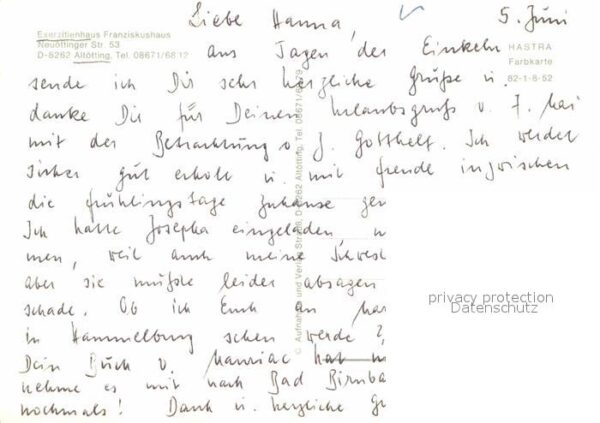 Liebe Hanna, 5. Juni
Exerzitienhaus Franziskushaus
Neuöttinger Str. 53
D-8262 Altötting, Tel. 08671/6812
HASTRA
Farbkarte
82-1-8-52
aus Tagen der Einkehr
sende ich Dir sehr herzliche Grüße u.
danke Dir für Deinen Urlaubsgruß v. 7. Mai
mit der Betrachtung v. J. Gotthelf. Ich werdet
sicher gut erholt u. mit Freude inzwischen
die Frühlingstage zuhause gen
Ich hatte Josepha eingeladen,
men, weil auch meine Schwest
aber sie mußte leider absagen
schade. Ob ich Euch an Mar
in Hammelburg sehen werde?
Dein Buch v. Mauriac hat
nehme es mit nach Bad Birnba
nochmals! Dank u. herzliche Gr
© Aufnahme und Verlag Strauß, D-8262 Altötting, Tel. 08671/6879
privacy protection
Datenschutz